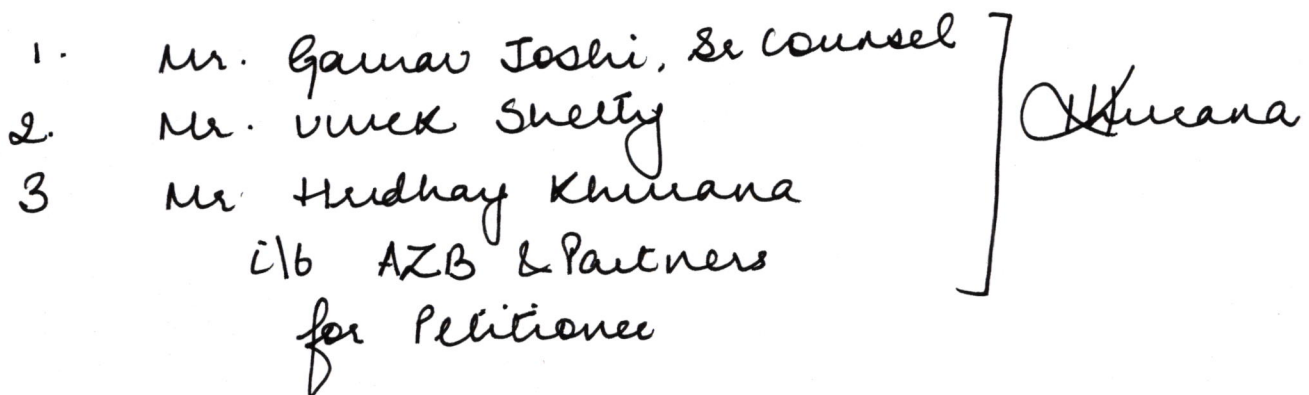 1. Mr. Gaurav Joshi, Sr Counsel
2. Mr. Vivek Shetty
3 Mr Hridhay Khurana
i\b AZB & Partners
for Petitioner
Khurana